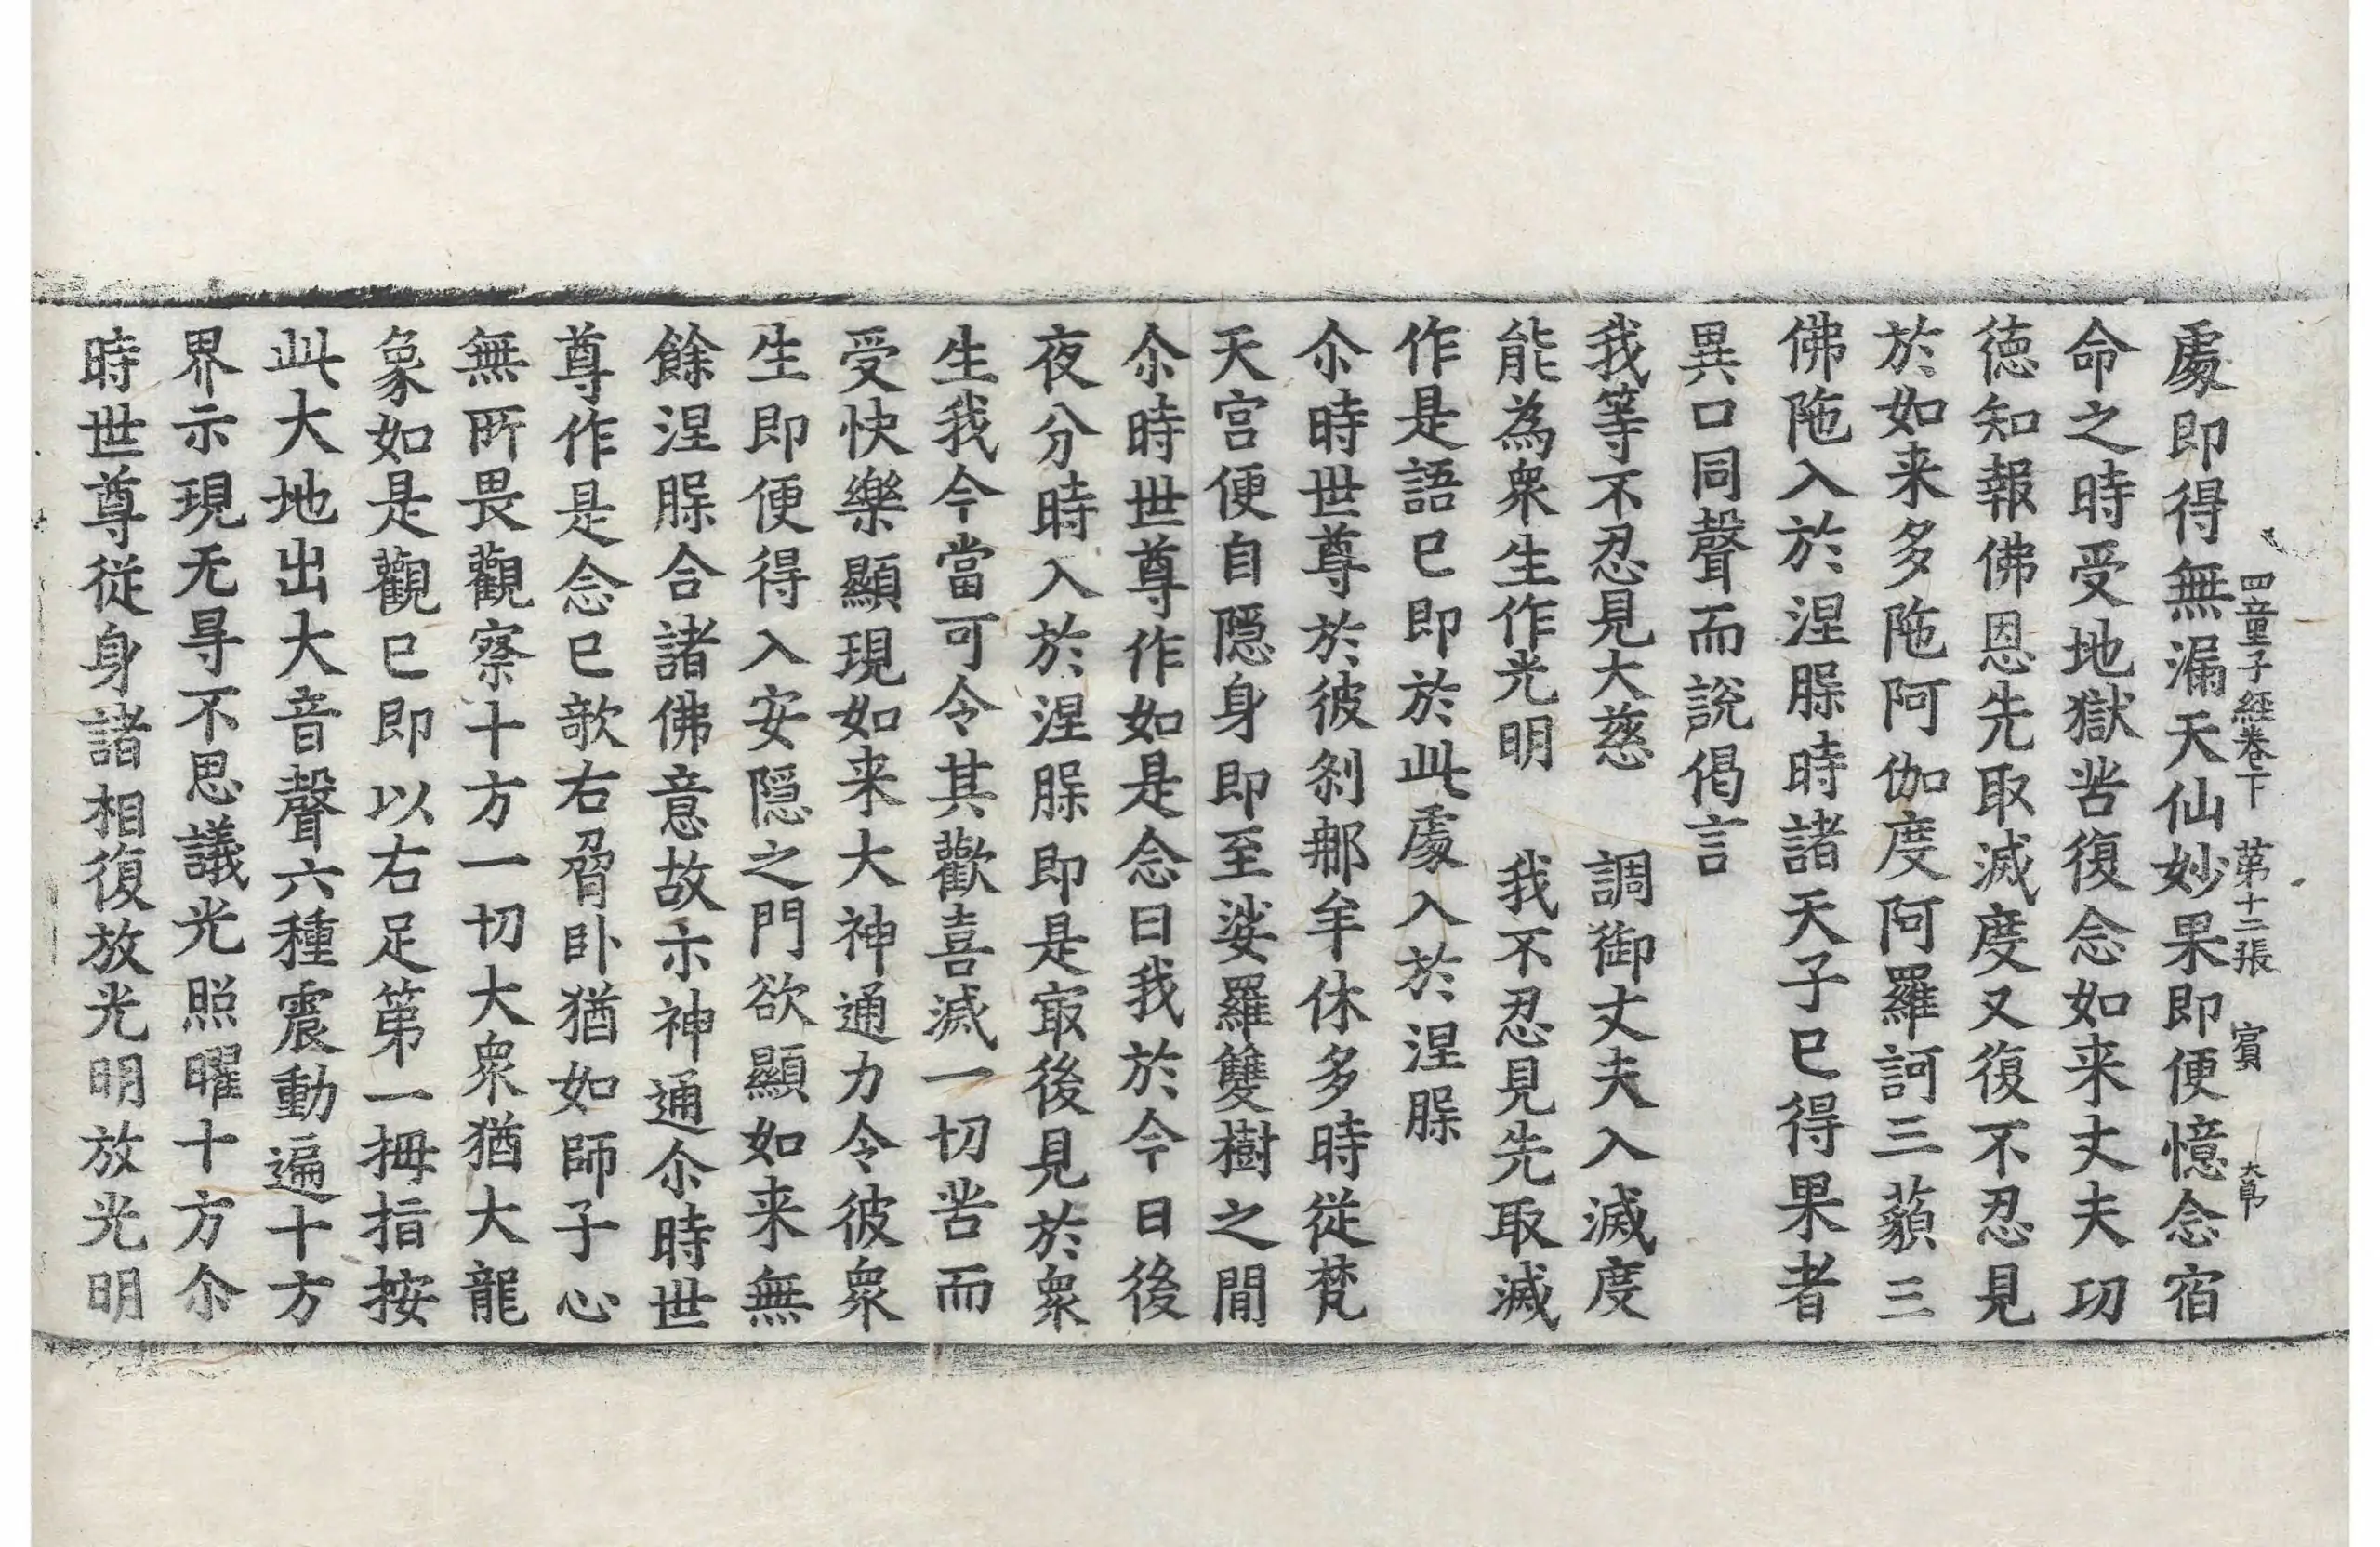 四童子経卷下　第十二張　賓　大卩
處即得無漏天仙妙果即便憶念宿
命之時受地獄苦復念如来丈夫功
徳知報佛恩先取滅度又復不忍見
於如来多陁阿伽度阿羅訶三藐三
佛陁入於涅槃時諸天子已得果者
異口同聲而說偈言
我等不忍見大慈　調御丈夫入滅度
能為衆生作光明　我不忍見先取滅
作是語已即於此處入於涅槃
尒時世尊於彼剎䣋牟休多時從梵
天宫便自隱身即至娑羅雙樹之間
尒時世尊作如是念日我於今日後
夜分時入於涅槃即是㝡後見於衆
生我今當可令其歡喜滅一切苦而
受快樂顯現如来大神通力令彼衆
生即便得入安隱之門欲顯如来無
餘涅槃合諸佛意故示神通尒時世
尊作是念已欹右脅卧猶如師子心
無所畏觀察十方一切大衆猶大龍
象如是觀已即以右足第一拇指按
此大地出大音聲六種震動遍十方
界示現无㝵不思議光照曜十方尒
時世尊從身諸相復放光明放光明